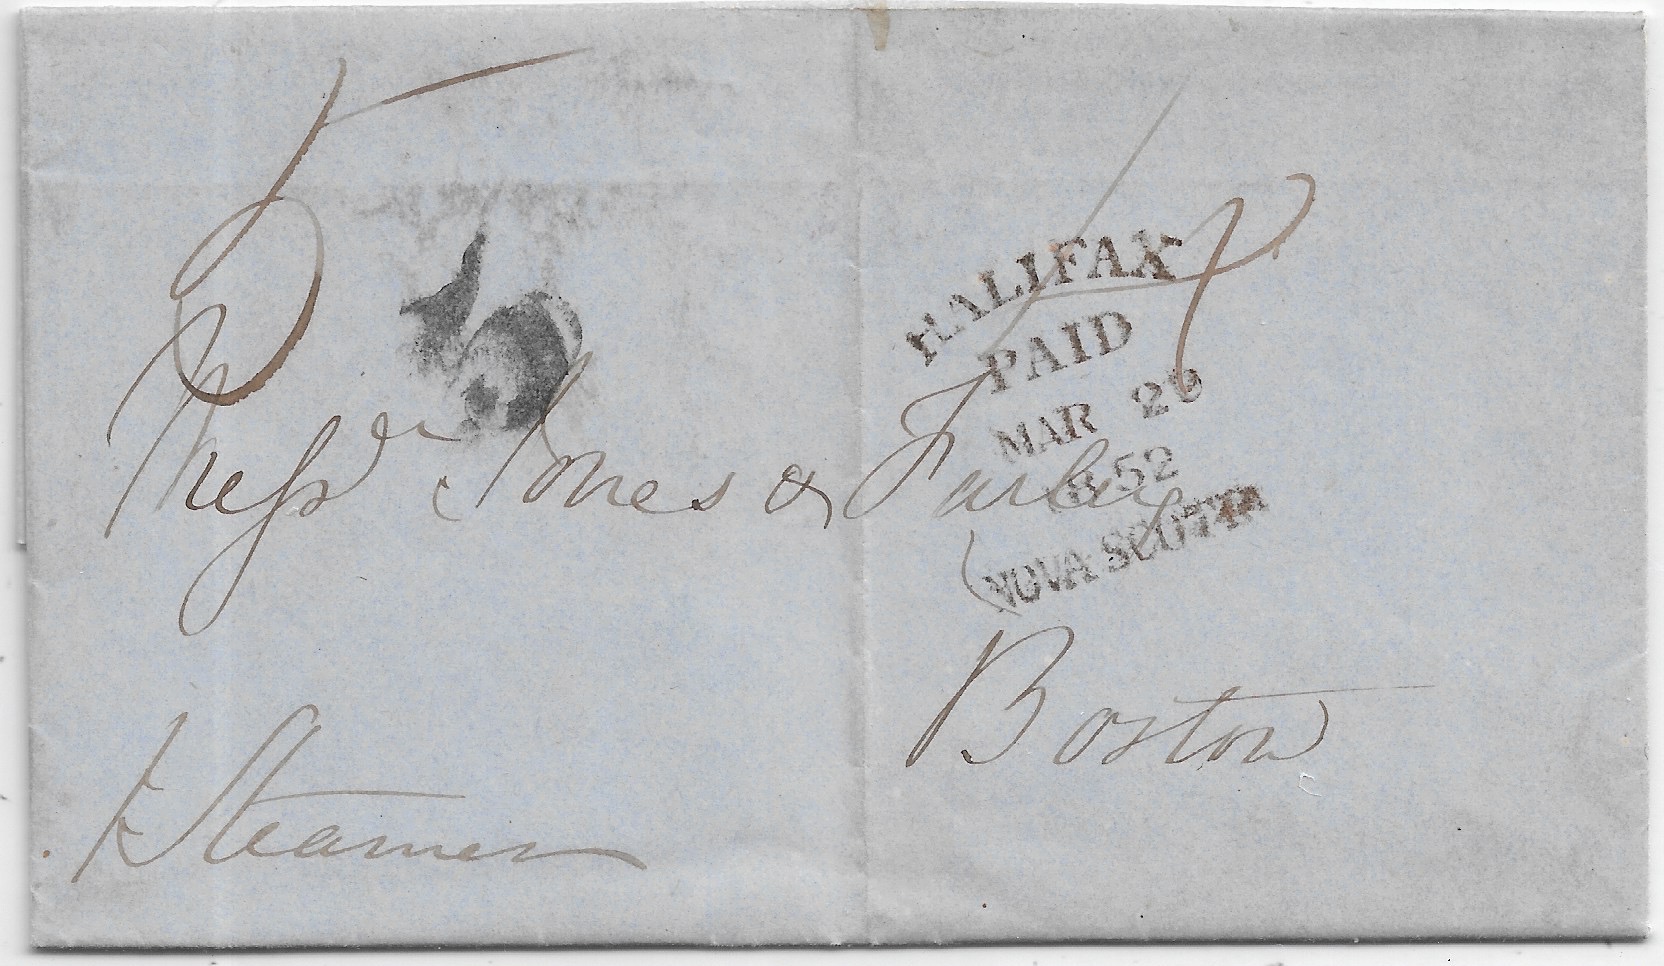 5
HALIFAX
PAID
MAR 26
1852
NOVA SCOTIA
Messrs Jones & Farley
Boston
p Steamer